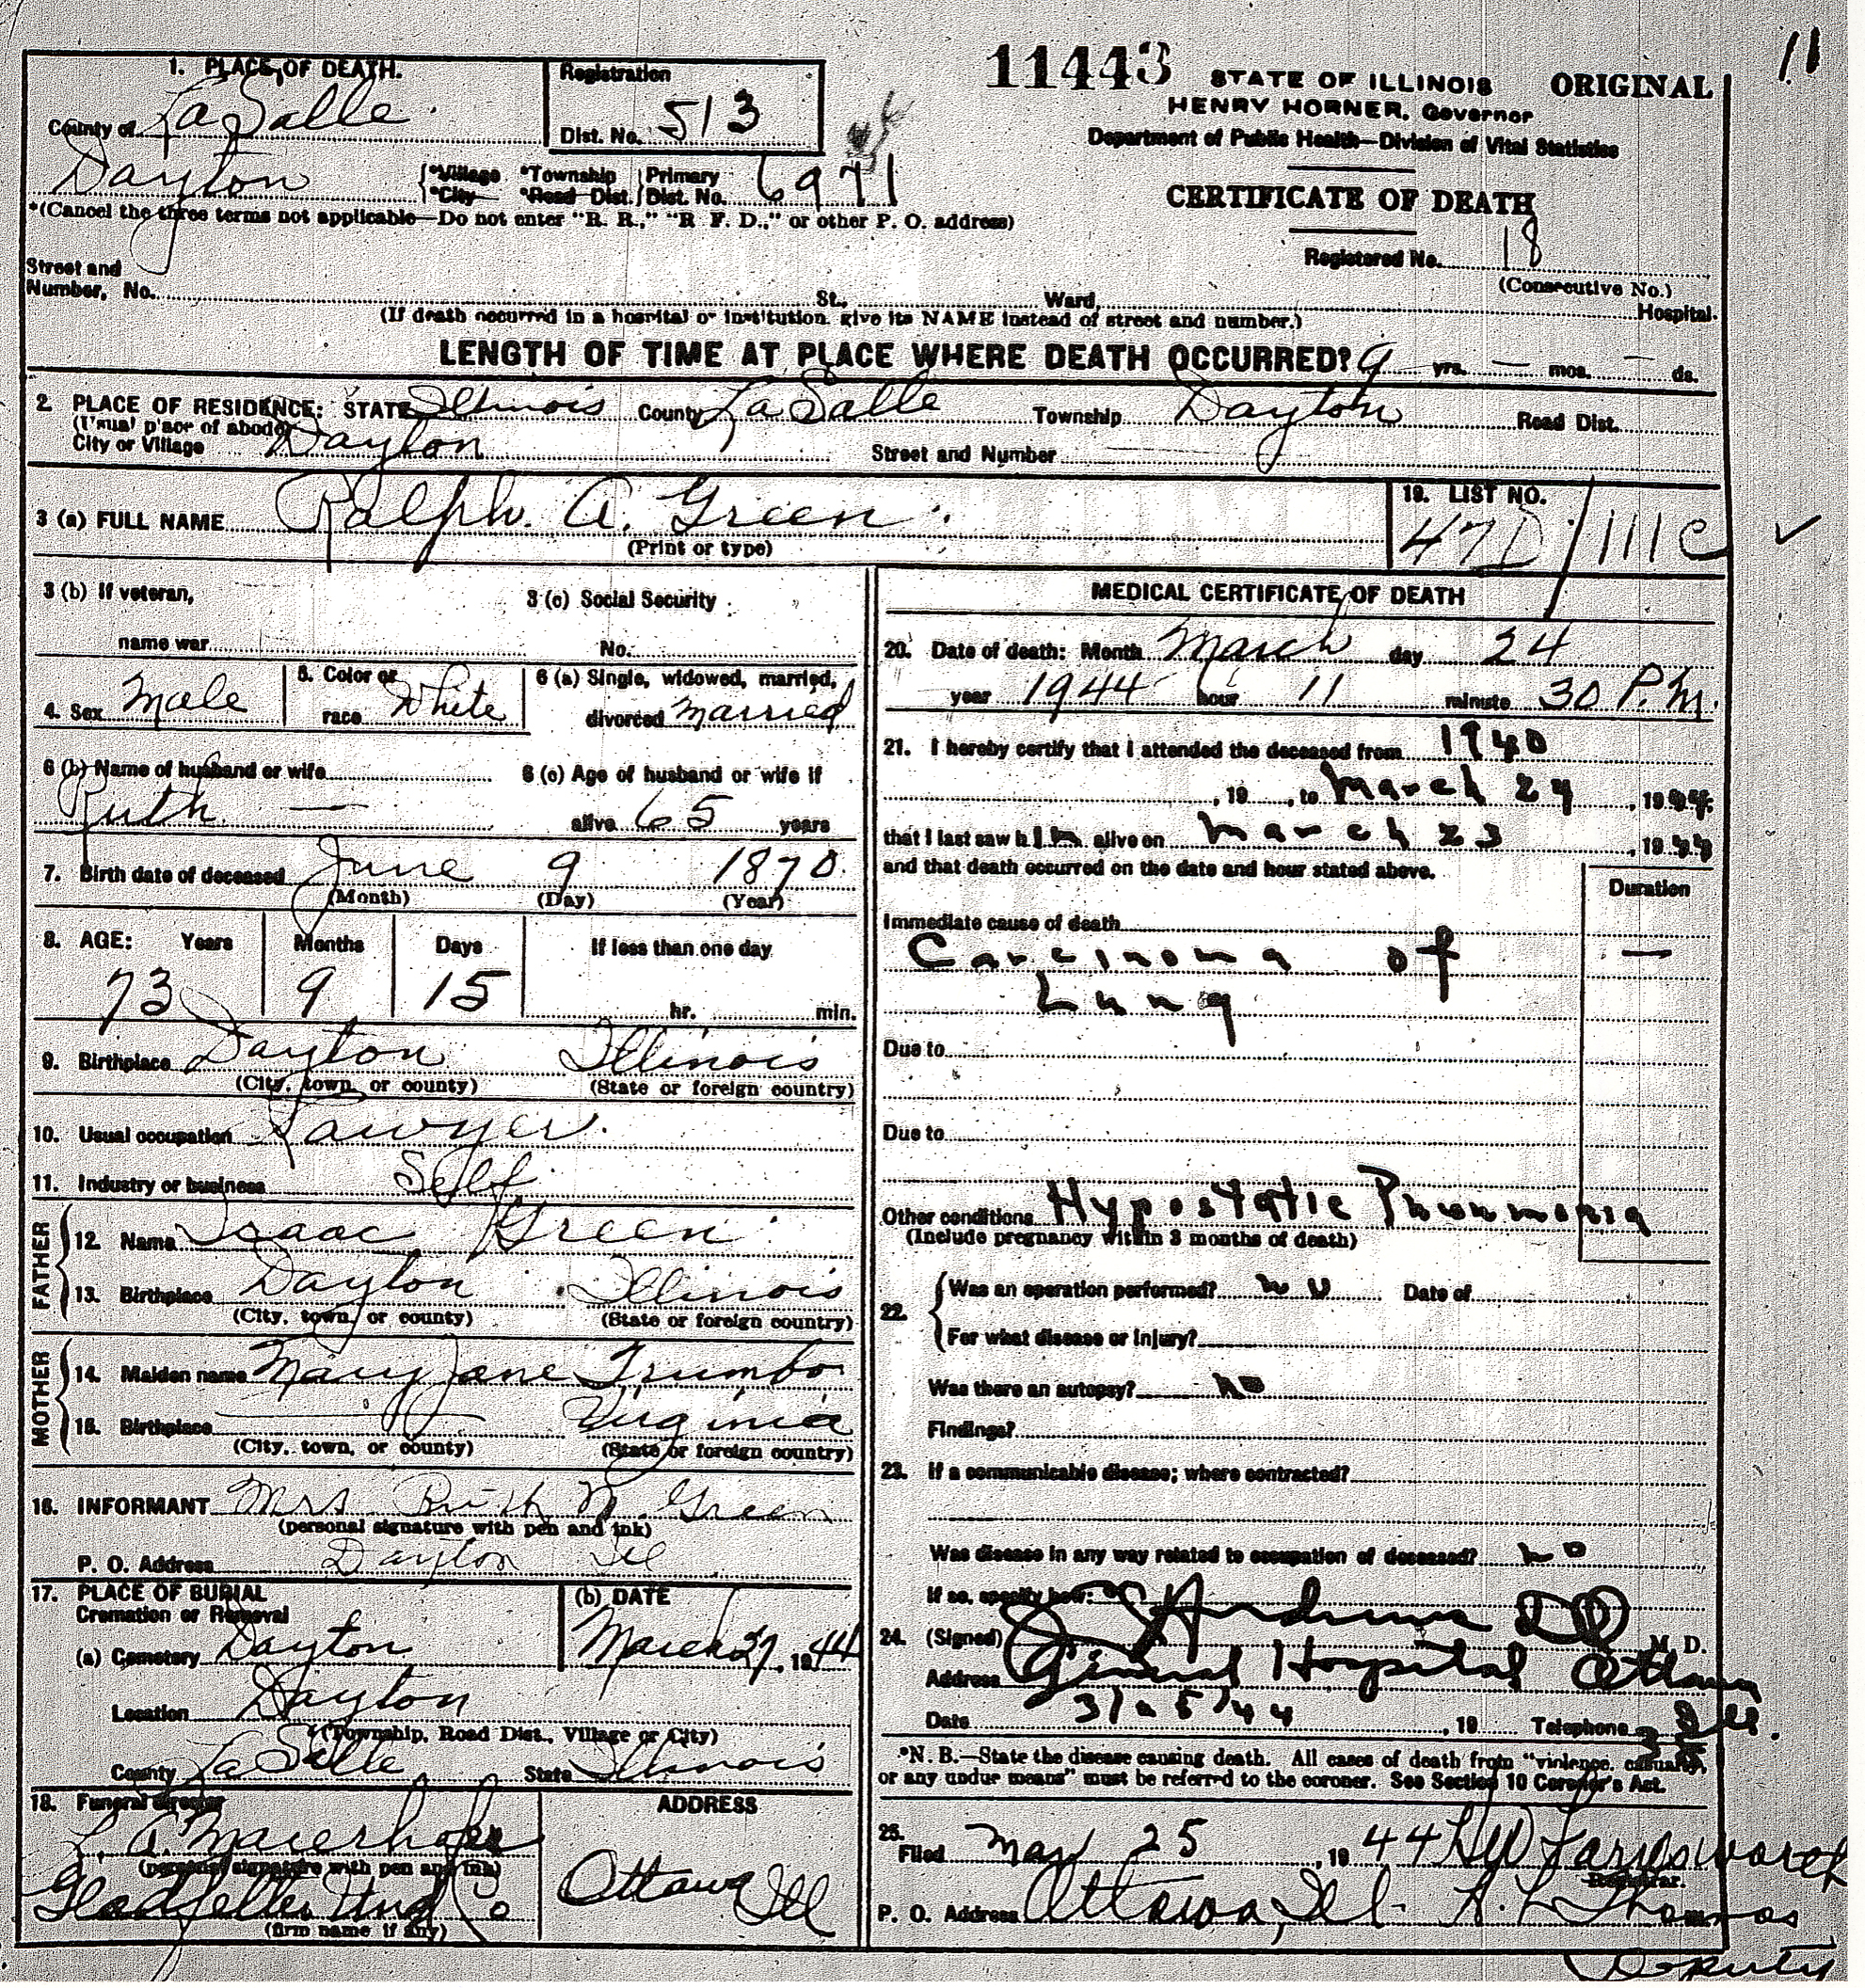 11
11443
STATE OF ILLINOIS ORIGINAL
HENRY HORNER, Governor
Department of Public Health—Division of Vital Statistics
CERTIFICATE OF DEATH
Registered No. 18
(Consecutive No.)
1. PLACE OF DEATH.
County of LaSalle
Registration
Dist. No. 513
Dayton {*Village *Township | Primary
*City *Road Dist. } Dist. No. 6971
*(Cancel the three terms not applicable—Do not enter "R. R.," "R F. D.," or other P. O. address)
Street and
Number, No. St., Ward, Hospital.
(If death occurred in a hospital or institution, give its NAME instead of street and number.)
LENGTH OF TIME AT PLACE WHERE DEATH OCCURRED? 9 yrs. — mos. — ds.
2. PLACE OF RESIDENCE: STATE Illinois County LaSalle Township Dayton Road Dist.
(Usual place of abode)
City or Village Dayton Street and Number
3 (a) FULL NAME Ralph A. Green
(Print or type)
19. LIST NO.
47D/111c
3 (b) If veteran,
name war
3 (c) Social Security
No.
4. Sex Male
5. Color or
race White
6 (a) Single, widowed, married,
divorced Married
6 (b) Name of husband or wife
Ruth —
6 (c) Age of husband or wife if
alive 65 years
7. Birth date of deceased June 9 1870
(Month) (Day) (Year)
8. AGE: Years Months Days If less than one day
73 9 15 hr. min.
9. Birthplace Dayton Illinois
(City, town, or county) (State or foreign country)
10. Usual occupation Lawyer
11. Industry or business Self
FATHER
12. Name Isaac Green
13. Birthplace Dayton Illinois
(City, town, or county) (State or foreign country)
MOTHER
14. Maiden name Mary Jane Trumbo
15. Birthplace Virginia
(City, town, or county) (State or foreign country)
16. INFORMANT Mrs Ruth N. Green
(personal signature with pen and ink)
P. O. Address Dayton Ill
17. PLACE OF BURIAL
Cremation or Removal
(a) Cemetery Dayton
(b) DATE
March 27, 1944
Location Dayton
(Township, Road Dist., Village or City)
County LaSalle State Illinois
18. Funeral director ADDRESS
(personal signature with pen and ink)
Ottawa Ill
(firm name if any)
MEDICAL CERTIFICATE OF DEATH
20. Date of death: Month March day 24
year 1944 hour 11 minute 30 P.M.
21. I hereby certify that I attended the deceased from 1940
, 19 , to March 24 , 1944
that I last saw him alive on March 23 , 1944
and that death occurred on the date and hour stated above.
Duration
Immediate cause of death
Carcinoma of —
Lung
Due to
Due to
Other conditions Hypostatic Pneumonia
(Include pregnancy within 3 months of death)
22. Was an operation performed? no Date of
For what disease or injury?
Was there an autopsy? no
Findings?
23. If a communicable disease; where contracted?
Was disease in any way related to occupation of deceased? no
If so, specify how:
24. (Signed) M. D.
Address General Hospital Ottawa
Ill.
Date 3/25/44 , 19 Telephone
*N. B.—State the disease causing death. All cases of death from "violence, casualty,
or any undue means" must be referred to the coroner. See Section 10 Coroner's Act.
25. Filed Mar 25, 1944
Registrar.
P. O. Address Ottawa, Ill. H. L. Thomas
Deputy